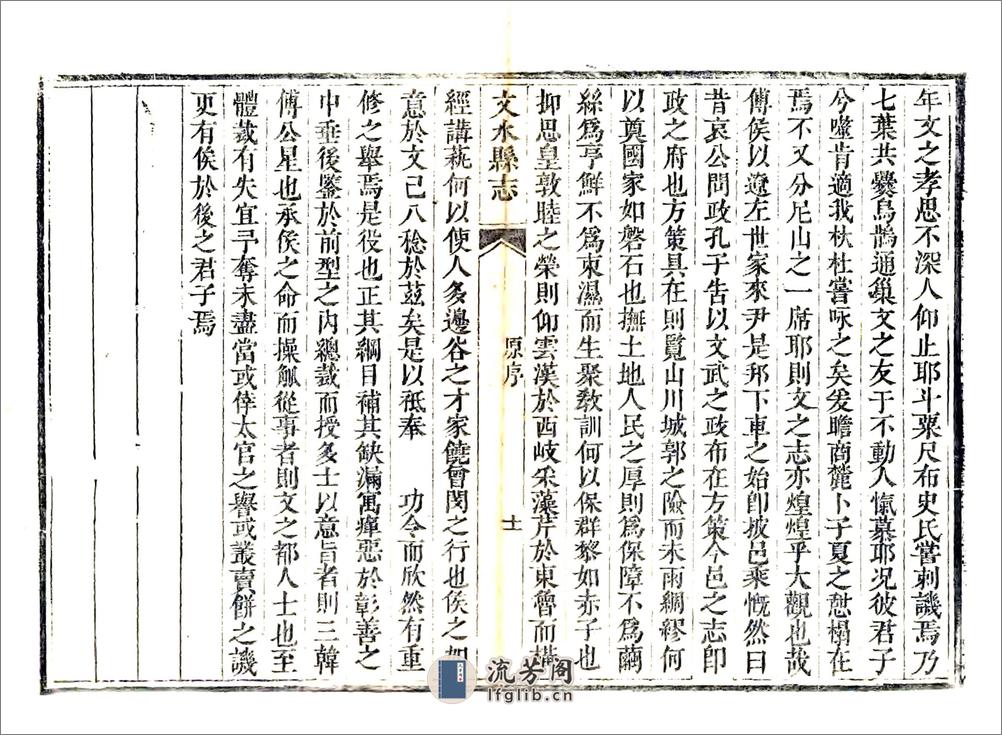 年文之孝思不深人仰止耶斗粟尺布史氏嘗刺譏焉乃
七葉共爨烏鵲通巢文之友于不動人愾慕耶况彼君子
兮噬肯適我杕杜嘗咏之矣爰瞻商麓卜子夏之憩榻在
焉不又分尼山之一席耶則文之志亦煌煌乎大觀也哉
傅侯以遼左世家來尹是邦下車之始卽披邑乘慨然曰
昔哀公問政孔子告以文武之政布在方策今邑之志卽
政之府也方策具在則覽山川城郭之險而未雨綢繆何
以奠國家如磐石也撫土地人民之厚則爲保障不爲繭
絲爲亨鮮不爲束濕而生聚敎訓何以保群黎如赤子也
抑思皇敦睦之榮則仰雲漢於西岐采藻芹於東魯而橫
文水縣志
原序
十
經講蓺何以使人多邊谷之才家饒曾閔之行也侯之加
意於文已八稔於茲矣是以祗奉　功令而欣然有重
修之舉焉是役也正其綱目補其缺漏寓癉惡於彰善之
中垂後鑒於前型之内總裁而授多士以意旨者則三韓
傅公星也承侯之命而操觚從事者則文之都人士也至
體裁有失宜予奪未盡當或倖太官之譽或叢賣餅之譏
更有俟於後之君子焉
流芳阁
lfglib.cn